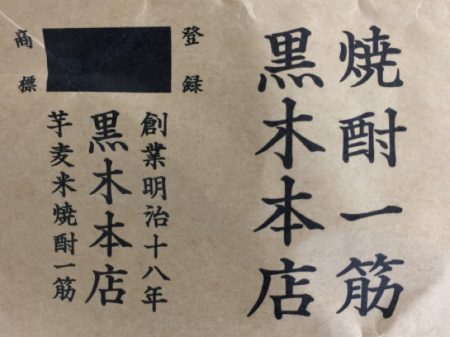 焼酎一筋
黒木本店
登録
商標
創業明治十八年
黒木本店
芋麦米焼酎一筋